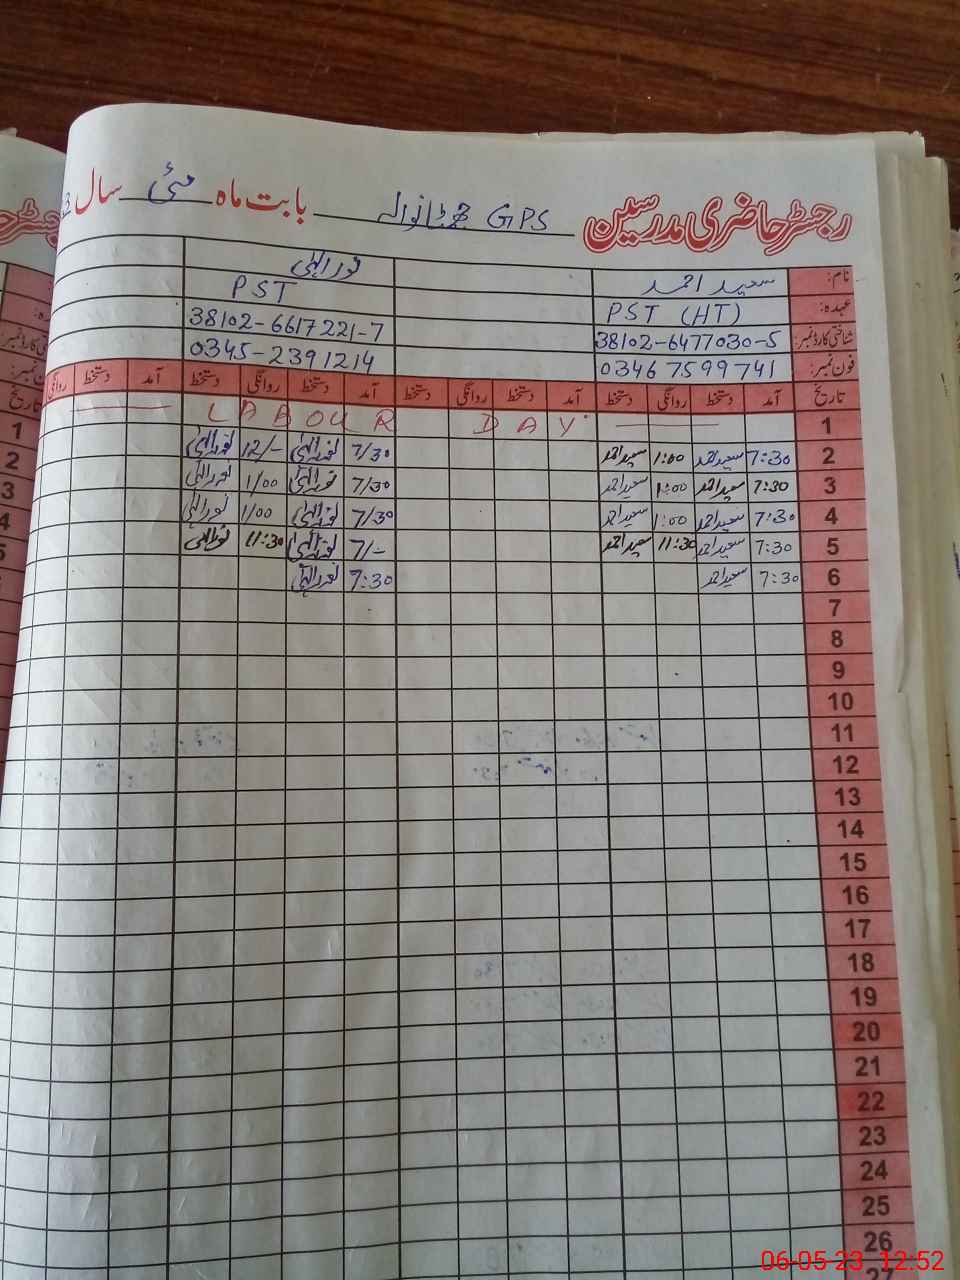 رجسٹر حاضری مدرسین GPS جھٹانوالہ بابت ماہ مئی سال
نام: سعید احمد نور الہی
عہدہ: PST (HT) PST
شناختی کارڈ نمبر: 38102-6477030-5 38102-6617221-7
فون نمبر: 0346 7599741 0345-2391214
تاریخ آمد دستخط روانگی دستخط آمد دستخط روانگی دستخط آمد دستخط روانگی دستخط آمد دستخط روانگی
1 LABOUR DAY
2 7:30 سعید احمد 1:00 سعید احمد 7/30 نور الہی 12/- نور الہی
3 7:30 سعید احمد 1:00 سعید احمد 7/30 نور الہی 1/00 نور الہی
4 7:30 سعید احمد 1:00 سعید احمد 7/30 نور الہی 1/00 نور الہی
5 7:30 سعید احمد 11:30 سعید احمد 7/- نور الہی 11:30 نور الہی
6 7:30 سعید احمد 7:30 نور الہی
7
8
9
10
11
12
13
14
15
16
17
18
19
20
21
22
23
24
25
26
27
06-05-23 12:52